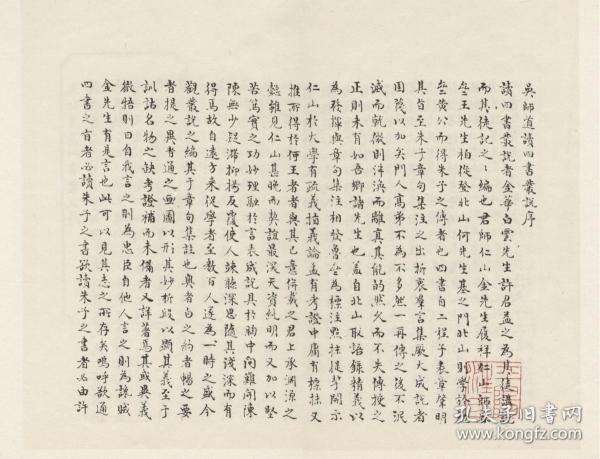 吳師道讀四書叢說序
讀四書叢說者金華白雲先生許君益之為其徒講說
而其徒記之之編也君師仁山金先生履祥仁山師
王先生柏從登北山何先生基之門北山則學於
黃公而得朱子之傳者也四書自二程子表章肇明
其旨至朱子章句集注之出折衷羣言集厥大成說者
固蔑以加矣門人高弟不為不多然一再傳之後不泯
滅而就微則泮渙而離真其能的然久而不失傳授之
正則未有如吾鄉諸先生也蓋自北山取語錄精義以
為發揮與章句集注相發魯齋為標注點抹提挈開示
仁山於大學有疏義指義論孟有考證中庸有標抹又
推所得於何王者者與其已意併載之君上承淵源之
懿雖見仁山甚晚而契誼最深天資純明而又加以堅
苦篤實之功妙理融於言表成說具於胸中問難開陳
陳無少疑滯抑揚反覆使人竦聽深思隨其淺深而有
得焉故自遠方來從學者至數百人遂為一時之盛今
觀叢說之編其于章句集註也奧者白之約者暢之要
者提之異者通之畫圖以形其妙析段以顯其義至于
訓詁名物之缺考證補而未備者又詳著焉其或異義
微牾則曰自我言之則為忠臣自他人言之則為讒賊
金先生有是言也此可以見其志之所存矣嗚呼欲通
四書之旨者必讀朱子之書欲讀朱子之書者必由許
孔夫子旧书网
www.kongfz.com